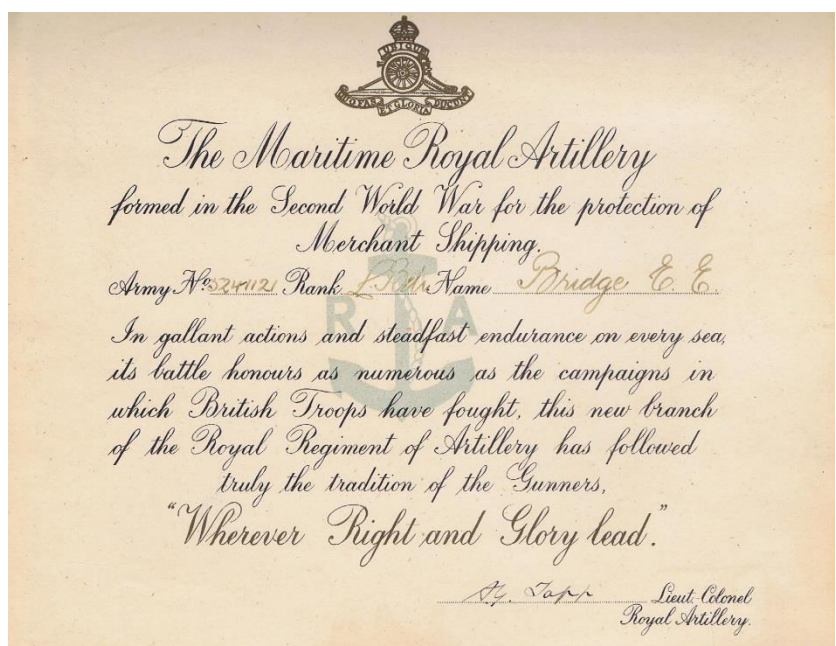 UBIQUE
QUO FAS ET GLORIA DUCUNT
The Maritime Royal Artillery
formed in the Second World War for the protection of
Merchant Shipping.
Army No. 5241121 Rank L.Bdr. Name Bridge E. E.
R A
In gallant actions and steadfast endurance on every sea,
its battle honours as numerous as the campaigns in
which British Troops have fought, this new branch
of the Royal Regiment of Artillery has followed
truly the tradition of the Gunners,
"Wherever Right and Glory lead."
Tapp Lieut. Colonel
Royal Artillery.